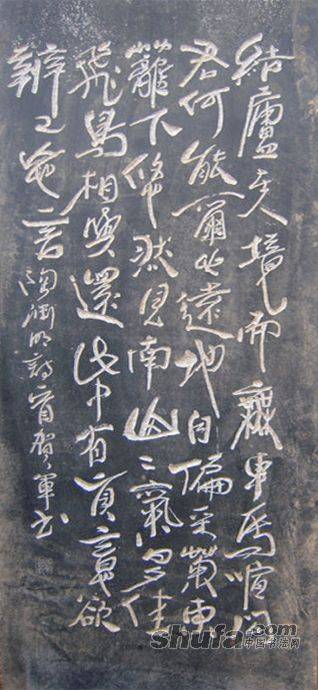 結廬在人境而無車馬喧問
君何能爾心遠地自偏采菊東
籬下悠然見南山〻氣日夕佳
飛鳥相與還此中有真意欲
辯已忘言 陶淵明詩首賀軍書
shufa.com
中国书法网